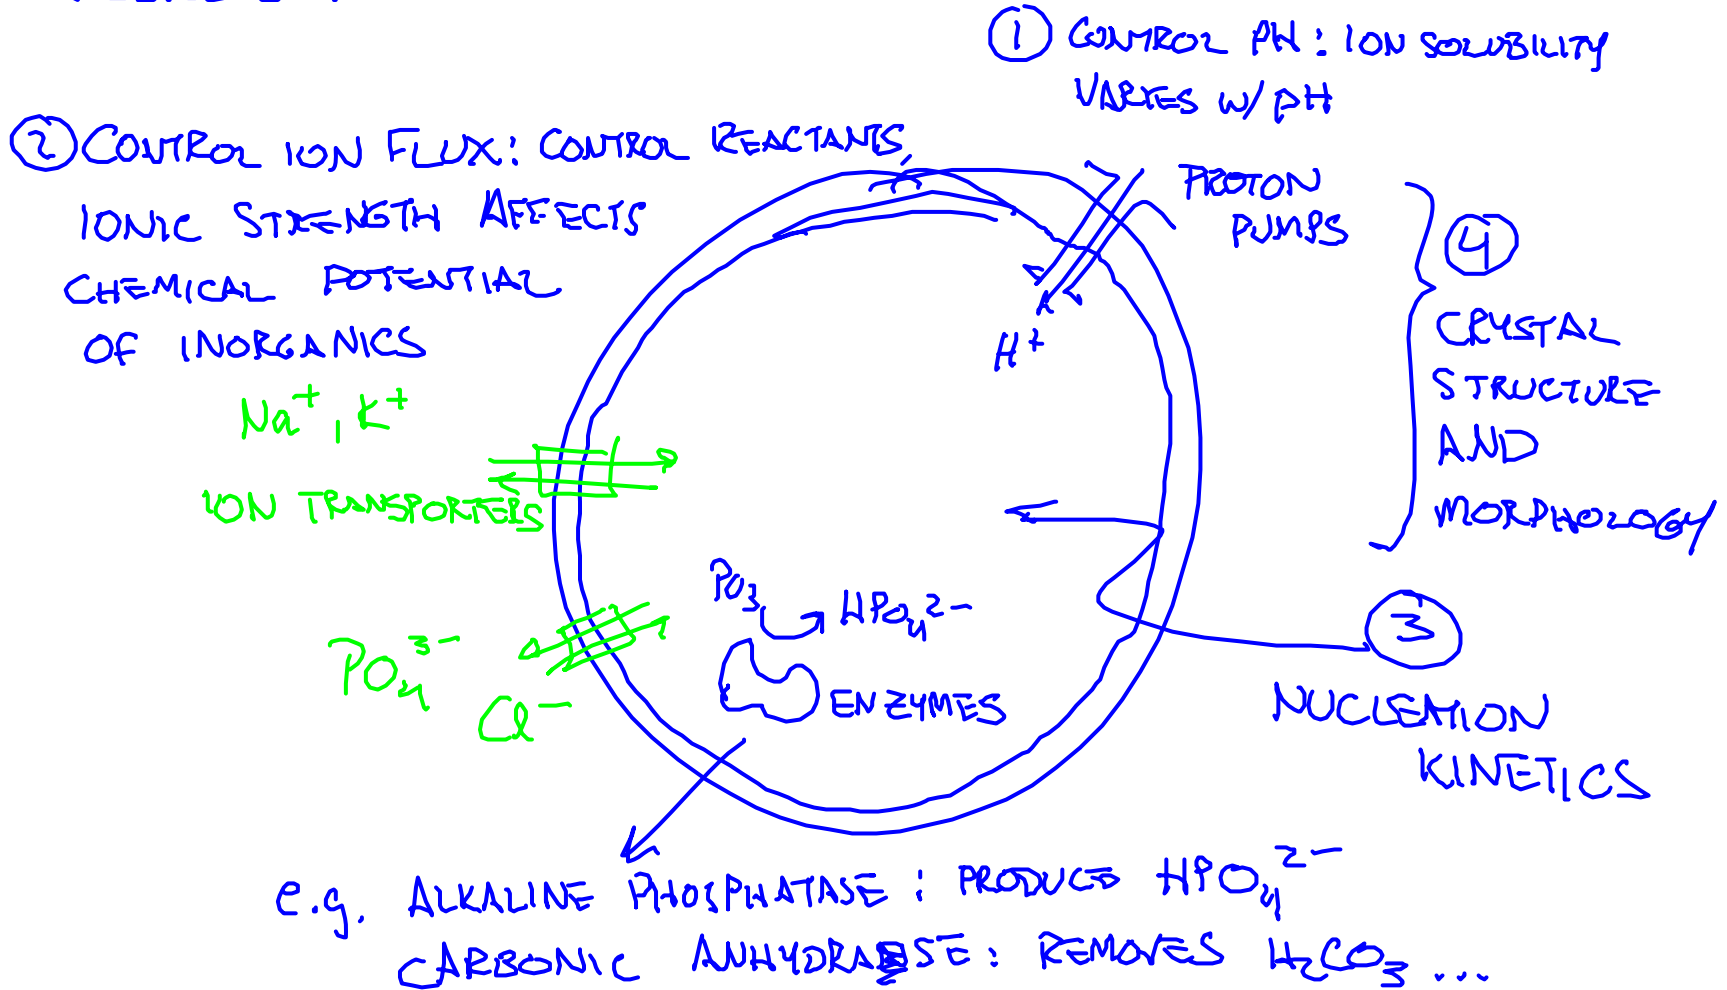 ① CONTROL PH: ION SOLUBILITY
VARIES W/ pH
② CONTROL ION FLUX: CONTROL REACTANTS,
IONIC STRENGTH AFFECTS
CHEMICAL POTENTIAL
OF INORGANICS
Na⁺, K⁺
ION TRANSPORTERS
PO₄³⁻
Cl⁻
PROTON
PUMPS
H⁺
④
CRYSTAL
STRUCTURE
AND
MORPHOLOGY
PO₃
HPO₄²⁻
ENZYMES
③
NUCLEATION
KINETICS
e.g. ALKALINE PHOSPHATASE: PRODUCE HPO₄²⁻
CARBONIC ANHYDRASE: REMOVES H₂CO₃ ...